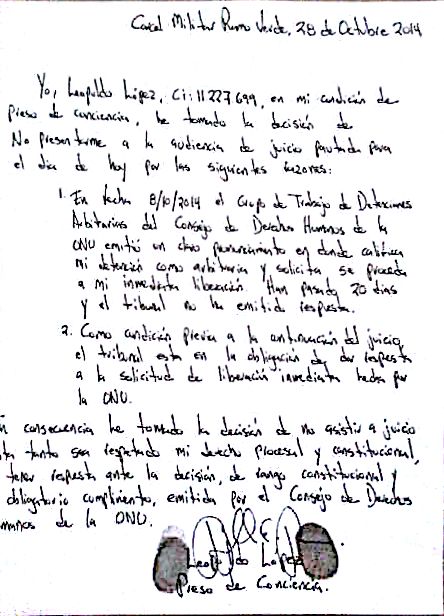 Carcel Militar Ramo Verde, 28 de Octubre 2014
Yo, Leopoldo López, Ci: 11227699, en mi condición de
preso de conciencia, he tomado la decisión de
No presentarme a la audiencia de juicio pautada para
el día de hoy por las siguientes razones:
1. En fecha 8/10/2014 el Grupo de Trabajo de Detenciones
Arbitrarias del Consejo de Derechos Humanos de la
ONU emitió un claro pronunciamiento en donde califica
mi detención como arbitraria y solicita se proceda
a mi inmediata liberación. Han pasado 20 dias
y el tribunal no ha emitido respuesta.
2. Como condición previa a la continuación del juicio,
el tribunal esta en la obligación de dar respuesta
a la solicitud de liberación inmediata hecha por
la ONU.
n consecuencia he tomado la decisión de no asistir a juicio
ta tanto sea respetado mi derecho procesal y constitucional,
tener respuesta ante la decisión, de rango constitucional y
obligatorio cumplimiento, emitida por el Consejo de Derechos
manos de la ONU.
Leopoldo López
Preso de Conciencia.